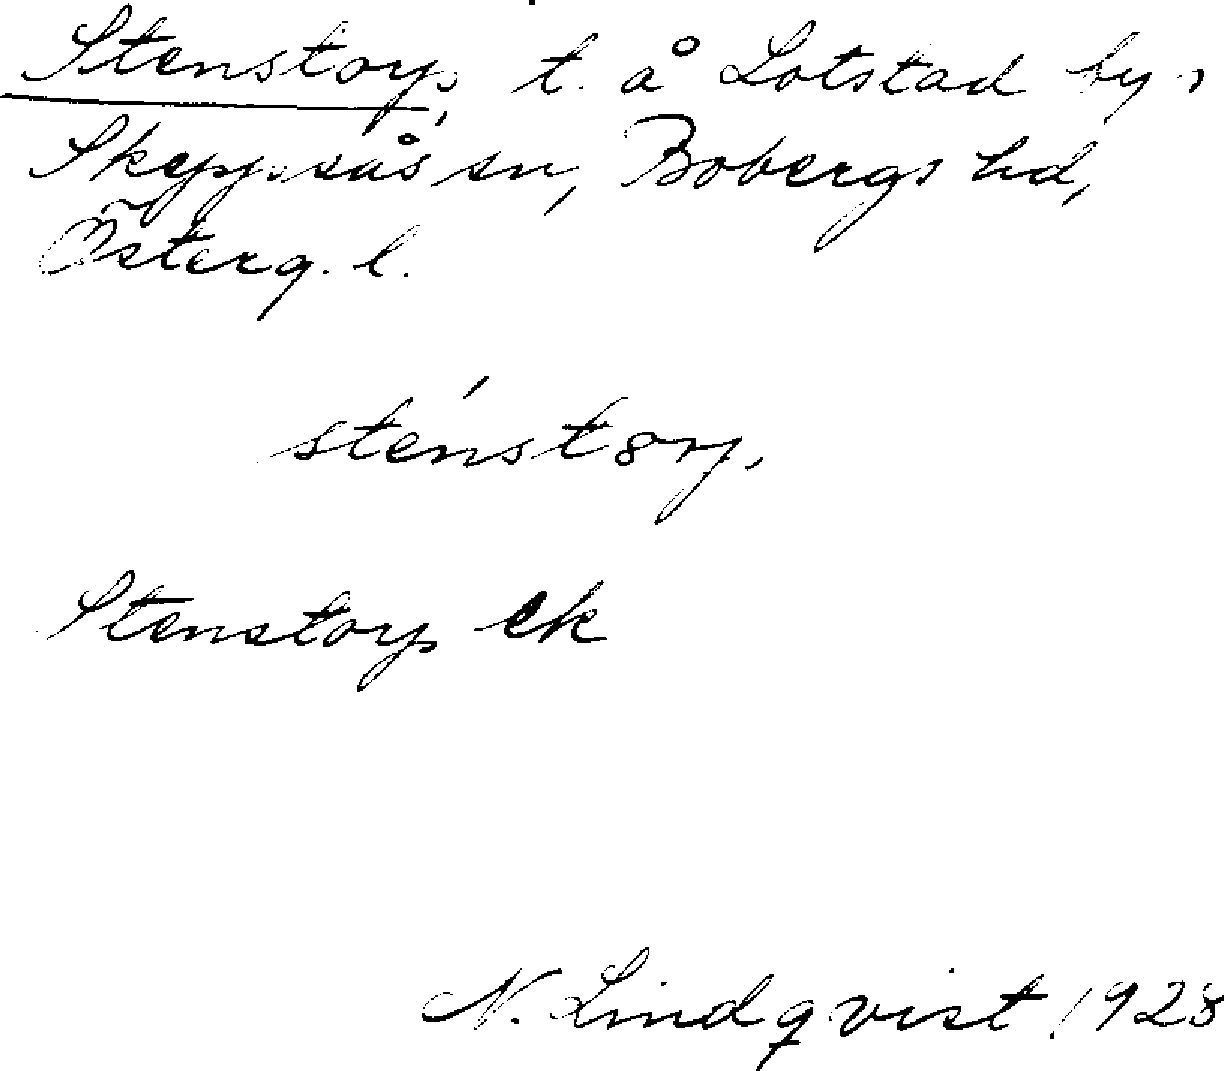 Stenstorp, t. å Lotstad by,
Skeppsås sn, Bobergs hd,
Österg. l.
sténst8rp.
Stenstorp ek
N. Lindqvist 1928